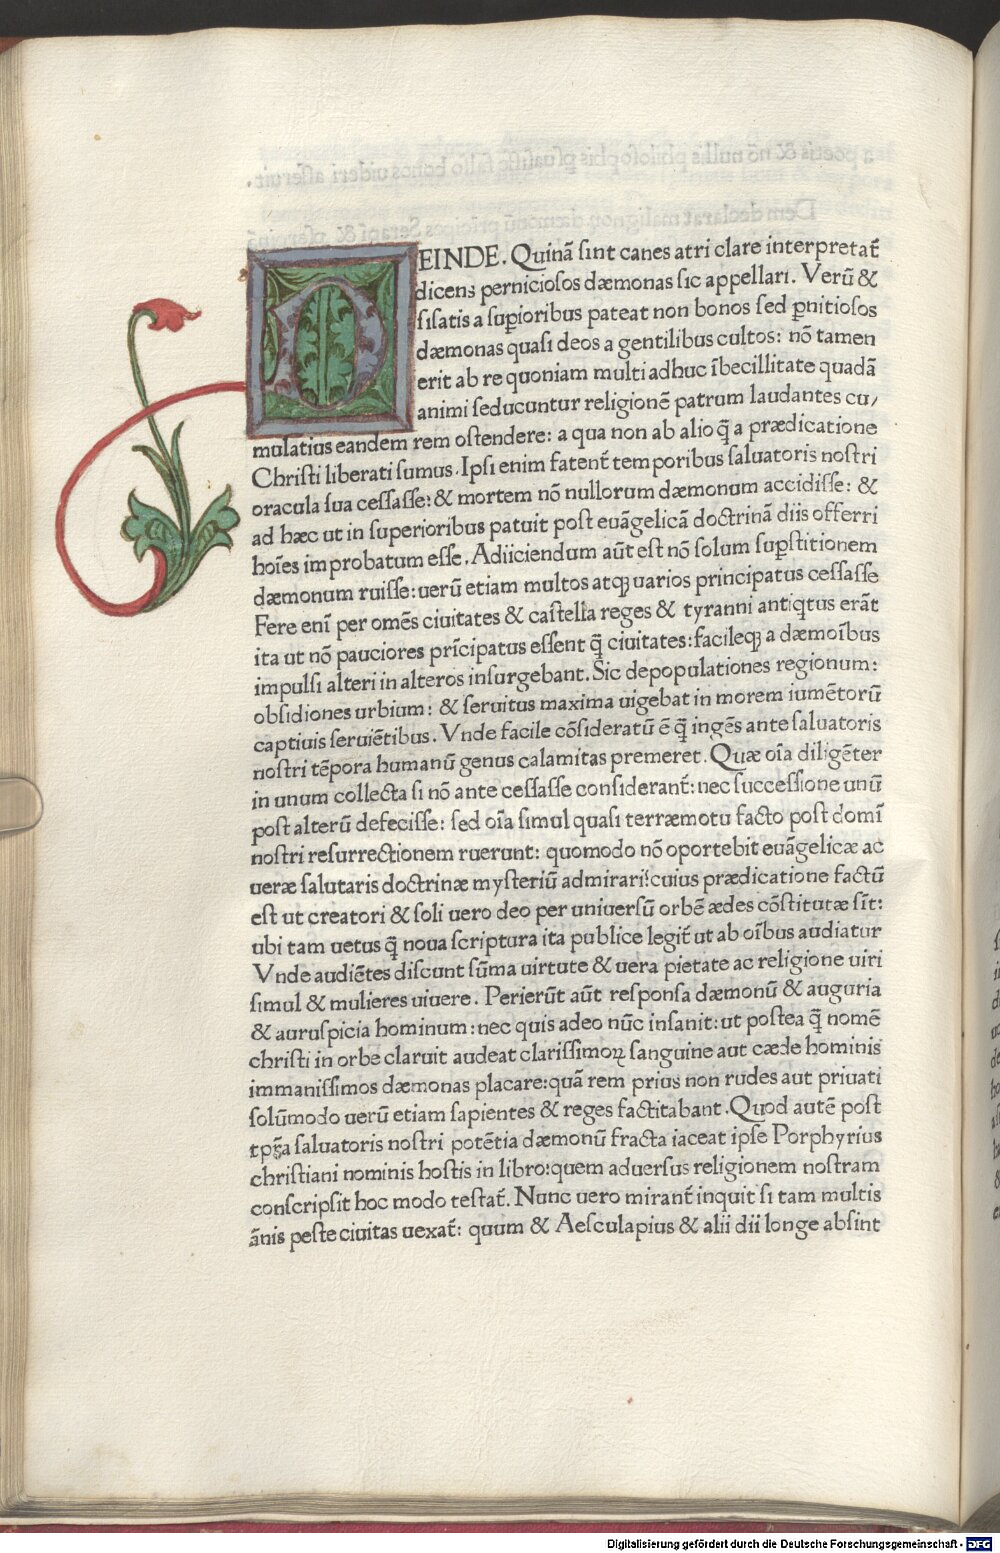 DEINDE. Quinã sint canes atri clare interpretat̃
dicens perniciosos dæmonas sic appellari. Verũ &
si satis a sup̱ioribus pateat non bonos sed p̱nitiosos
dæmonas quasi deos a gentilibus cultos: nõ tamen
erit ab re quoniam multi adhuc ĩbecillitate quadã
animi seducuntur religionẽ patrum laudantes cu/
mulatius eandem rem ostendere: a qua non ab alio q̃ a prædicatione
Christi liberati sumus. Ipsi enim fatent̃ temporibus saluatoris nostri
oracula sua cessasse: & mortem nõ nullorum dæmonum accidisse: &
ad hæc ut in superioribus patuit post euãgelicã doctrinã diis offerri
hoĩes improbatum esse. Adiiciendum aũt est nõ solum sup̱stitionem
dæmonum ruisse: uerũ etiam multos atqꝫ uarios principatus cessasse
Fere enĩ per omẽs ciuitates & castella reges & tyranni antiq̇tus erãt
ita ut nõ pauciores prĩcipatus essent q̃ ciuitates: facileqꝫ a dæmoĩbus
impulsi alteri in alteros insurgebant. Sic depopulationes regionum:
obsidiones urbium: & seruitus maxima uigebat in morem iumẽtorũ
captiuis seruiẽtibus. Vnde facile cõsideratũ ẽ q̃ ingẽs ante saluatoris
nostri tẽpora humanũ genus calamitas premeret. Quæ oĩa diligẽter
in unum collecta si nõ ante cessasse considerant̃: nec successione unũ
post alterũ defecisse: sed oĩa simul quasi terræmotu facto post domĩ
nostri resurrectionem ruerunt: quomodo nõ oportebit euãgelicæ ac
ueræ salutaris doctrinæ mysteriũ admirari? cuius prædicatione factũ
est ut creatori & soli uero deo per uniuersũ orbẽ ædes cõstitutæ sĩt:
ubi tam uetus q̃ noua scriptura ita publice legit̃ ut ab oĩbus audiatur
Vnde audiẽtes discunt sũma uirtute & uera pietate ac religione uiri
simul & mulieres uiuere. Perierũt aũt responsa dæmonũ & auguria
& auruspicia hominum: nec quis adeo nũc insanit: ut postea q̃ nomẽ
christi in orbe claruit audeat clarissimoꝝ sanguine aut cæde hominis
immanissimos dæmonas placare: quã rem prius non rudes aut priuati
solũmodo uerũ etiam sapientes & reges factitabant. Quod autẽ post
tp̱a saluatoris nostri potẽtia dæmonũ fracta iaceat ipse Porphyrius
christiani nominis hostis in libro: quem aduersus religionem nostram
conscripsit hoc modo testat̃. Nunc uero mirant̃ inquit si tam multis
ãnis peste ciuitas uexat̃: quum & Aesculapius & alii dii longe absint
Digitalisierung gefördert durch die Deutsche Forschungsgemeinschaft - DFG